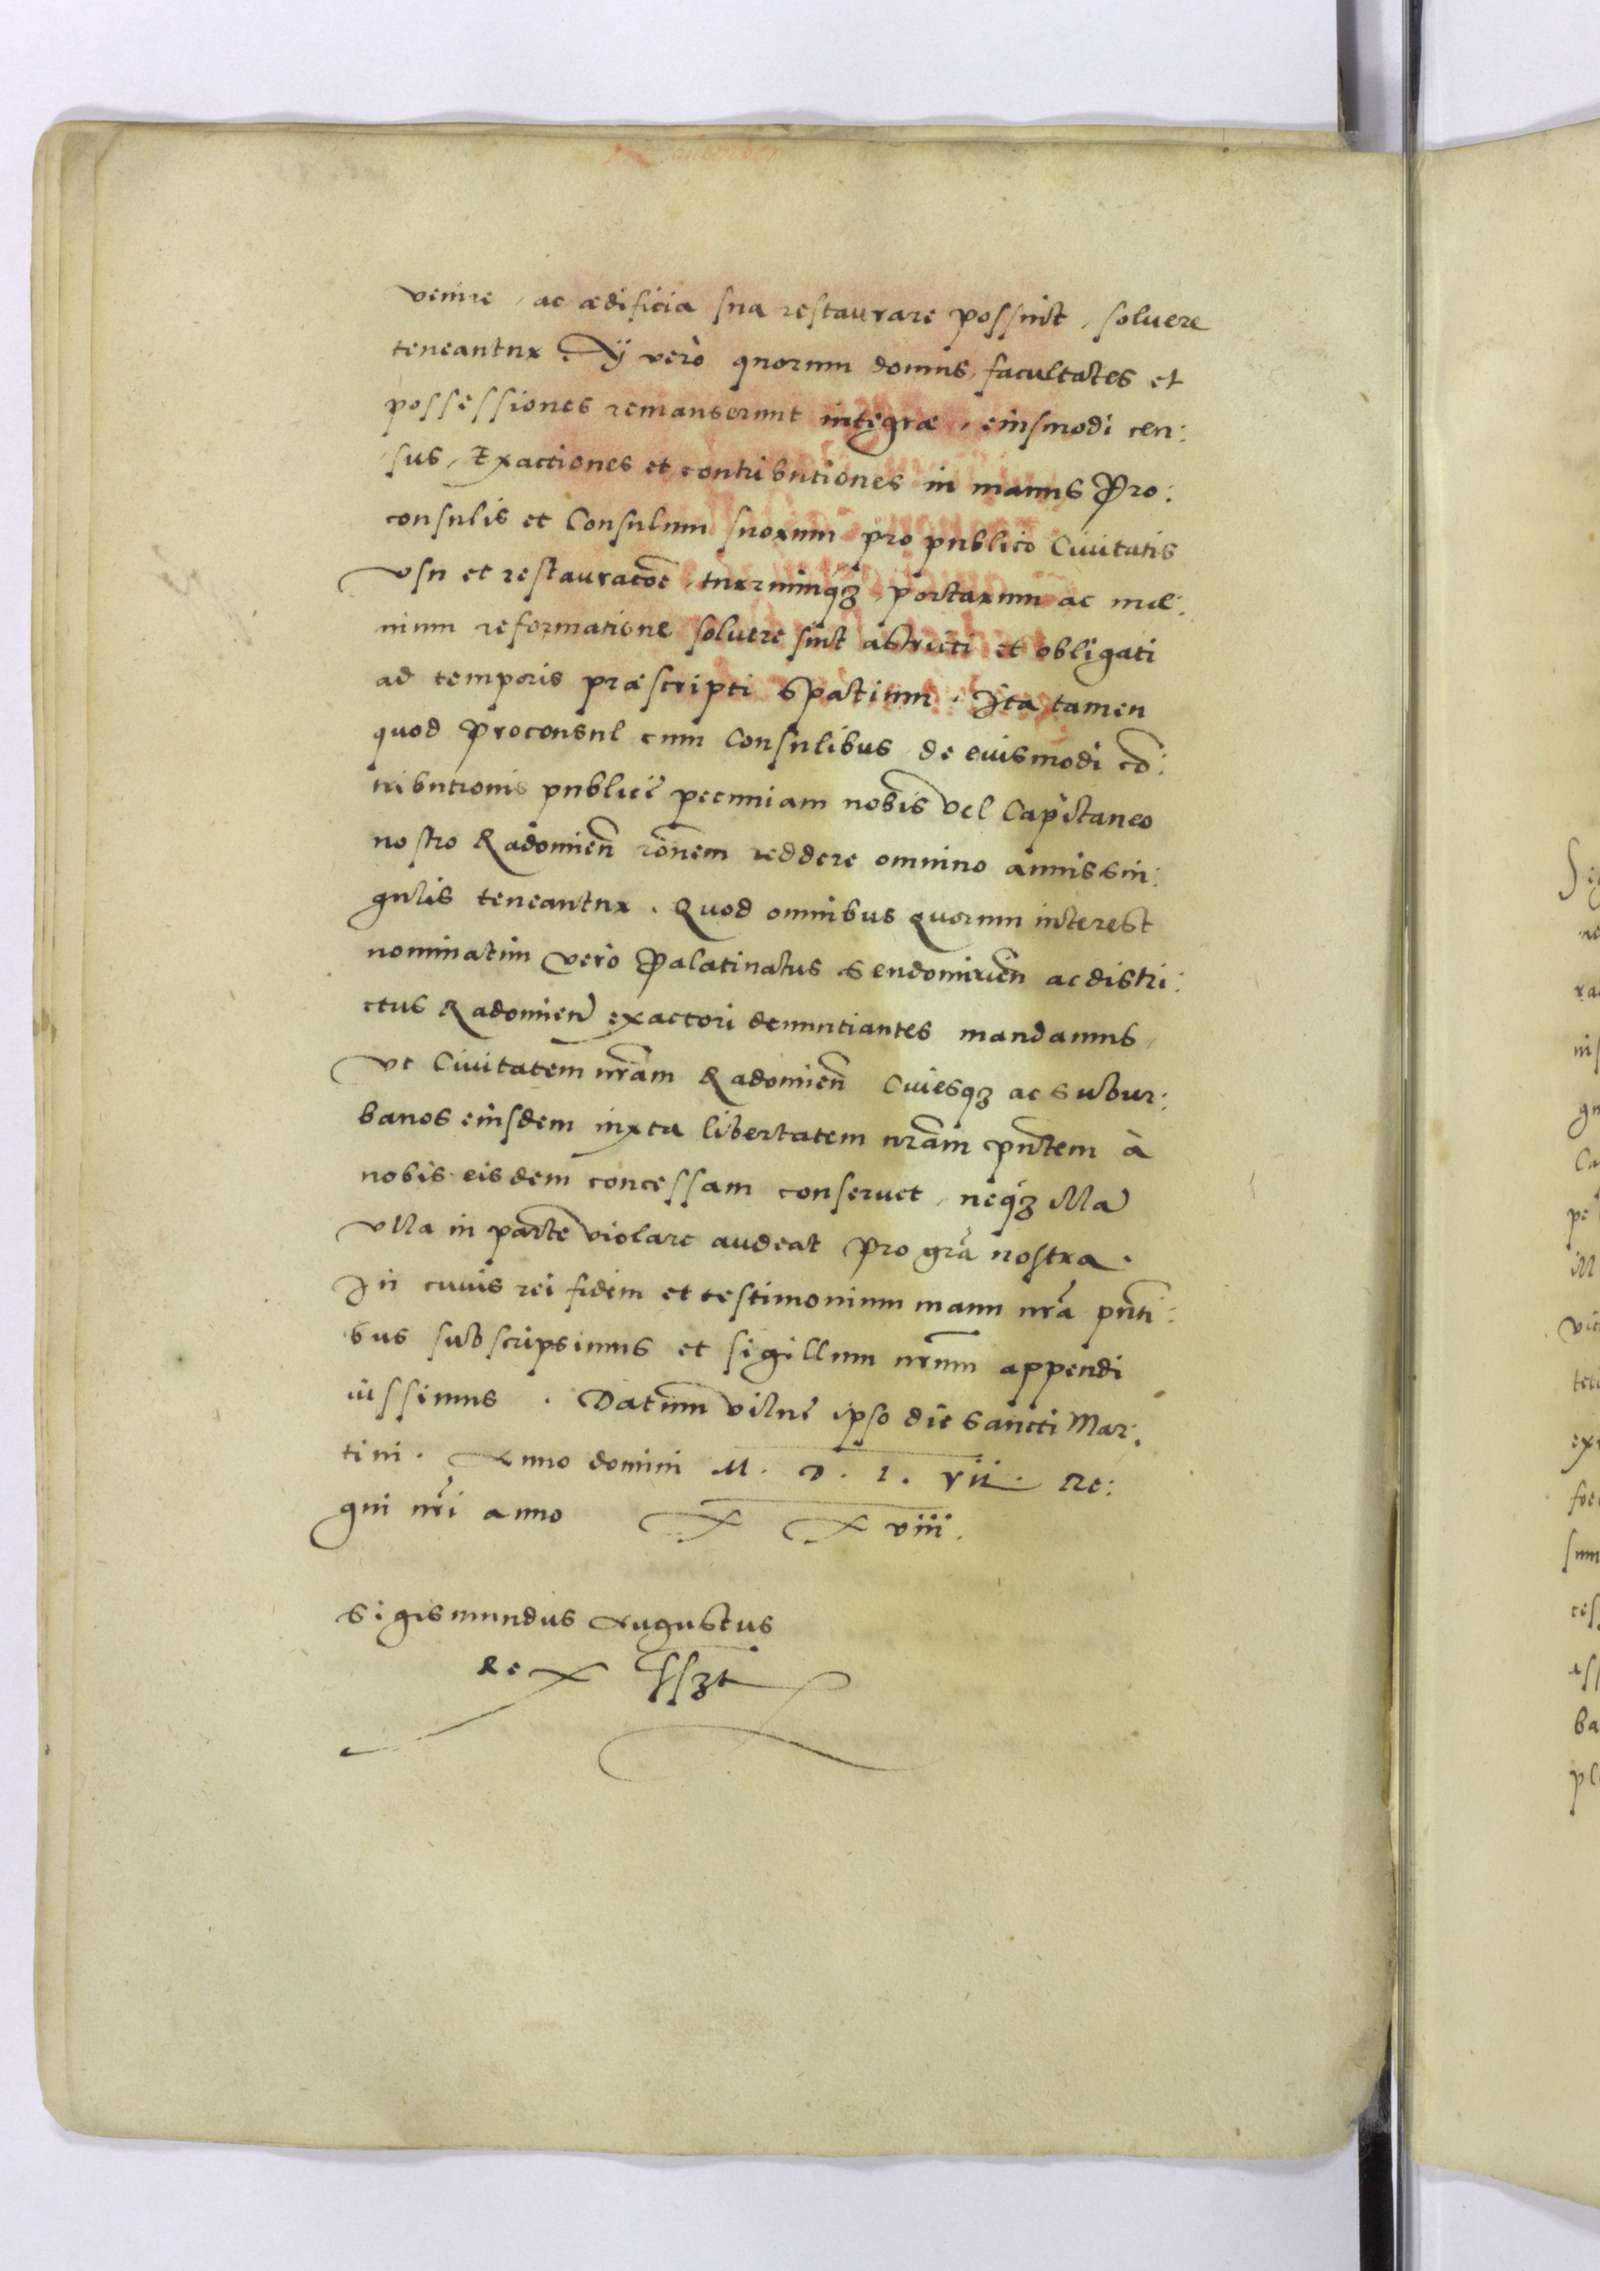 venire, ac ædificia sua restaurare possint, soluere
teneantur. Ij verò quorum domus, facultates et
possessiones remanserunt integræ, eiusmodi cen:
sus, Exactiones et contributiones in manus Pro:
consulis et Consulum suorum pro publico Ciuitatis
vsu et restauracõe, turrimuqꝫ, portarum ac me:
nium reformatione soluere sint astricti et obligati
ad temporis præscripti spatium. Ita tamen
quod Proconsul cum Consulibus de euismodi cõ:
tributionis publice pecuniam nobis vel Capitaneo
nostro Radomien̄ rõnem reddere omnino annis sin:
gulis teneantur. Quod omnibus quorum interest
nominatim verò Palatinatus Sendomirien̄ ac distri:
ctus Radomien̄ exactori denuntiantes mandamus,
vt Ciuitatem nr̄am Radomien̄ Ciuesqꝫ ac subur:
banos eiusdem iuxta libertatem nr̄am pn̄tem à
nobis eisdem concessam conseruet, neqꝫ illa
vlla in parte violare audeat pro gr̄a nostra.
In cuius rei fidem et testimonium manu nr̄a pn̄ti:
bus subscripsimus et sigillum nr̄um appendi
iussimus. Datum vilnę ipso die sancti Mar:
tini. Anno domini M. D. L. vii. Re:
gni nr̄i anno XXviii.
Sigismundus Augustus
Rex sszt